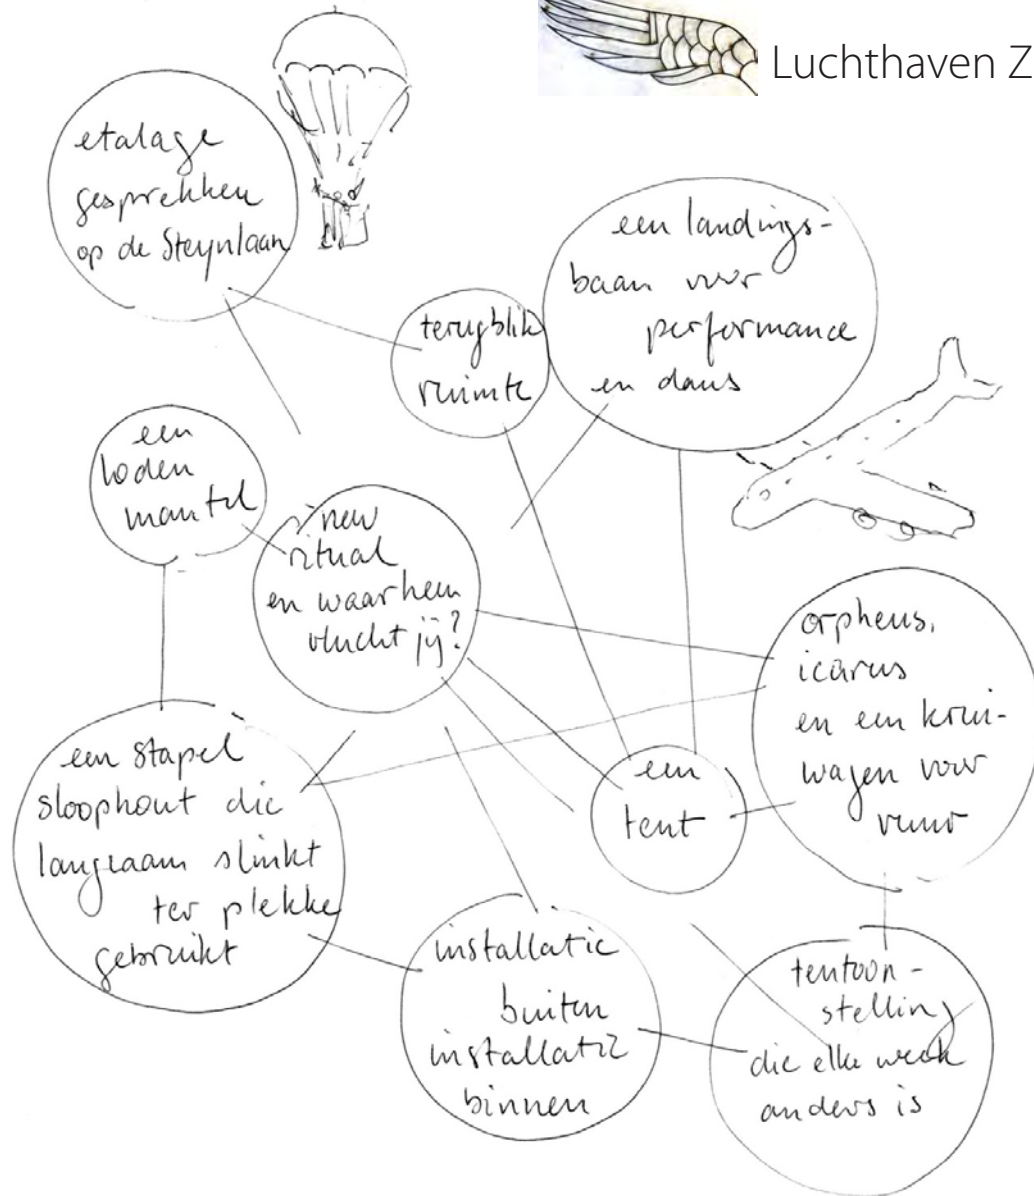 Luchthaven Z
etalage
gesprekken
op de Steynlaan
een landings-
baan voor
performance
en dans
terugblik
ruimte
een
loden
mantel
new
ritual
en waarheen
vlucht jij?
orpheus,
icarus
en een krui-
wagen voor
vuur
een stapel
sloophout die
langzaam slinkt
ter plekke
gebruikt
een
tent
installatie
buiten
installatie
binnen
tentoon-
stelling
die elke week
anders is